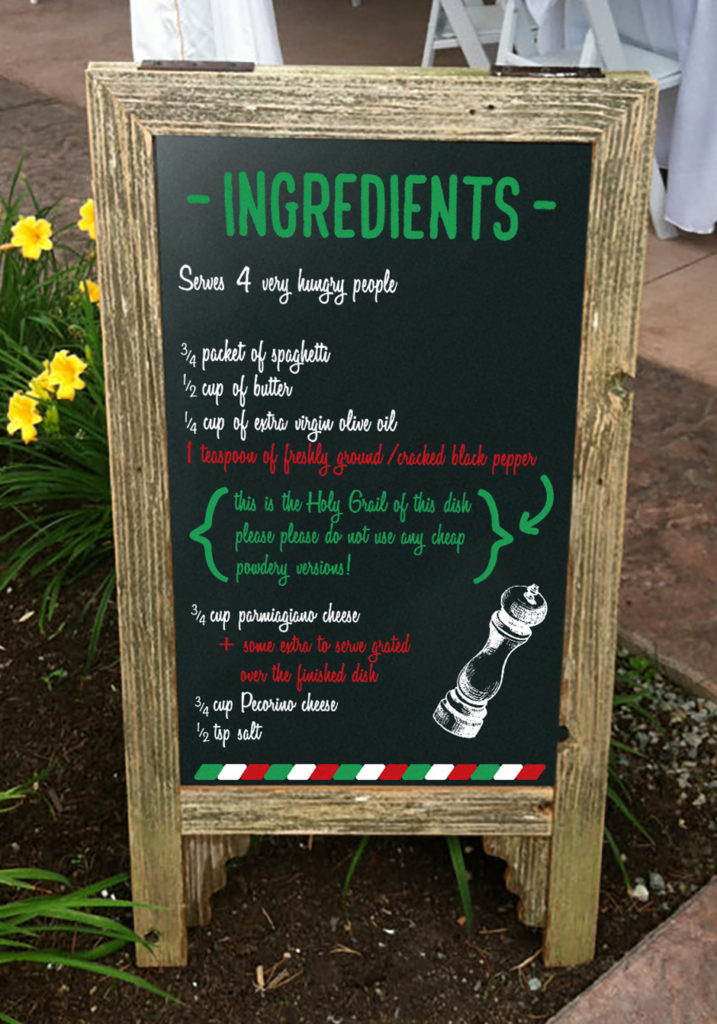 - INGREDIENTS -
Serves 4 very hungry people
3/4 packet of spaghetti
1/2 cup of butter
1/4 cup of extra virgin olive oil
1 teaspoon of freshly ground /cracked black pepper
{ this is the Holy Grail of this dish
please please do not use any cheap
powdery versions! }
3/4 cup parmiagiano cheese
+ some extra to serve grated
over the finished dish
3/4 cup Pecorino cheese
1/2 tsp salt